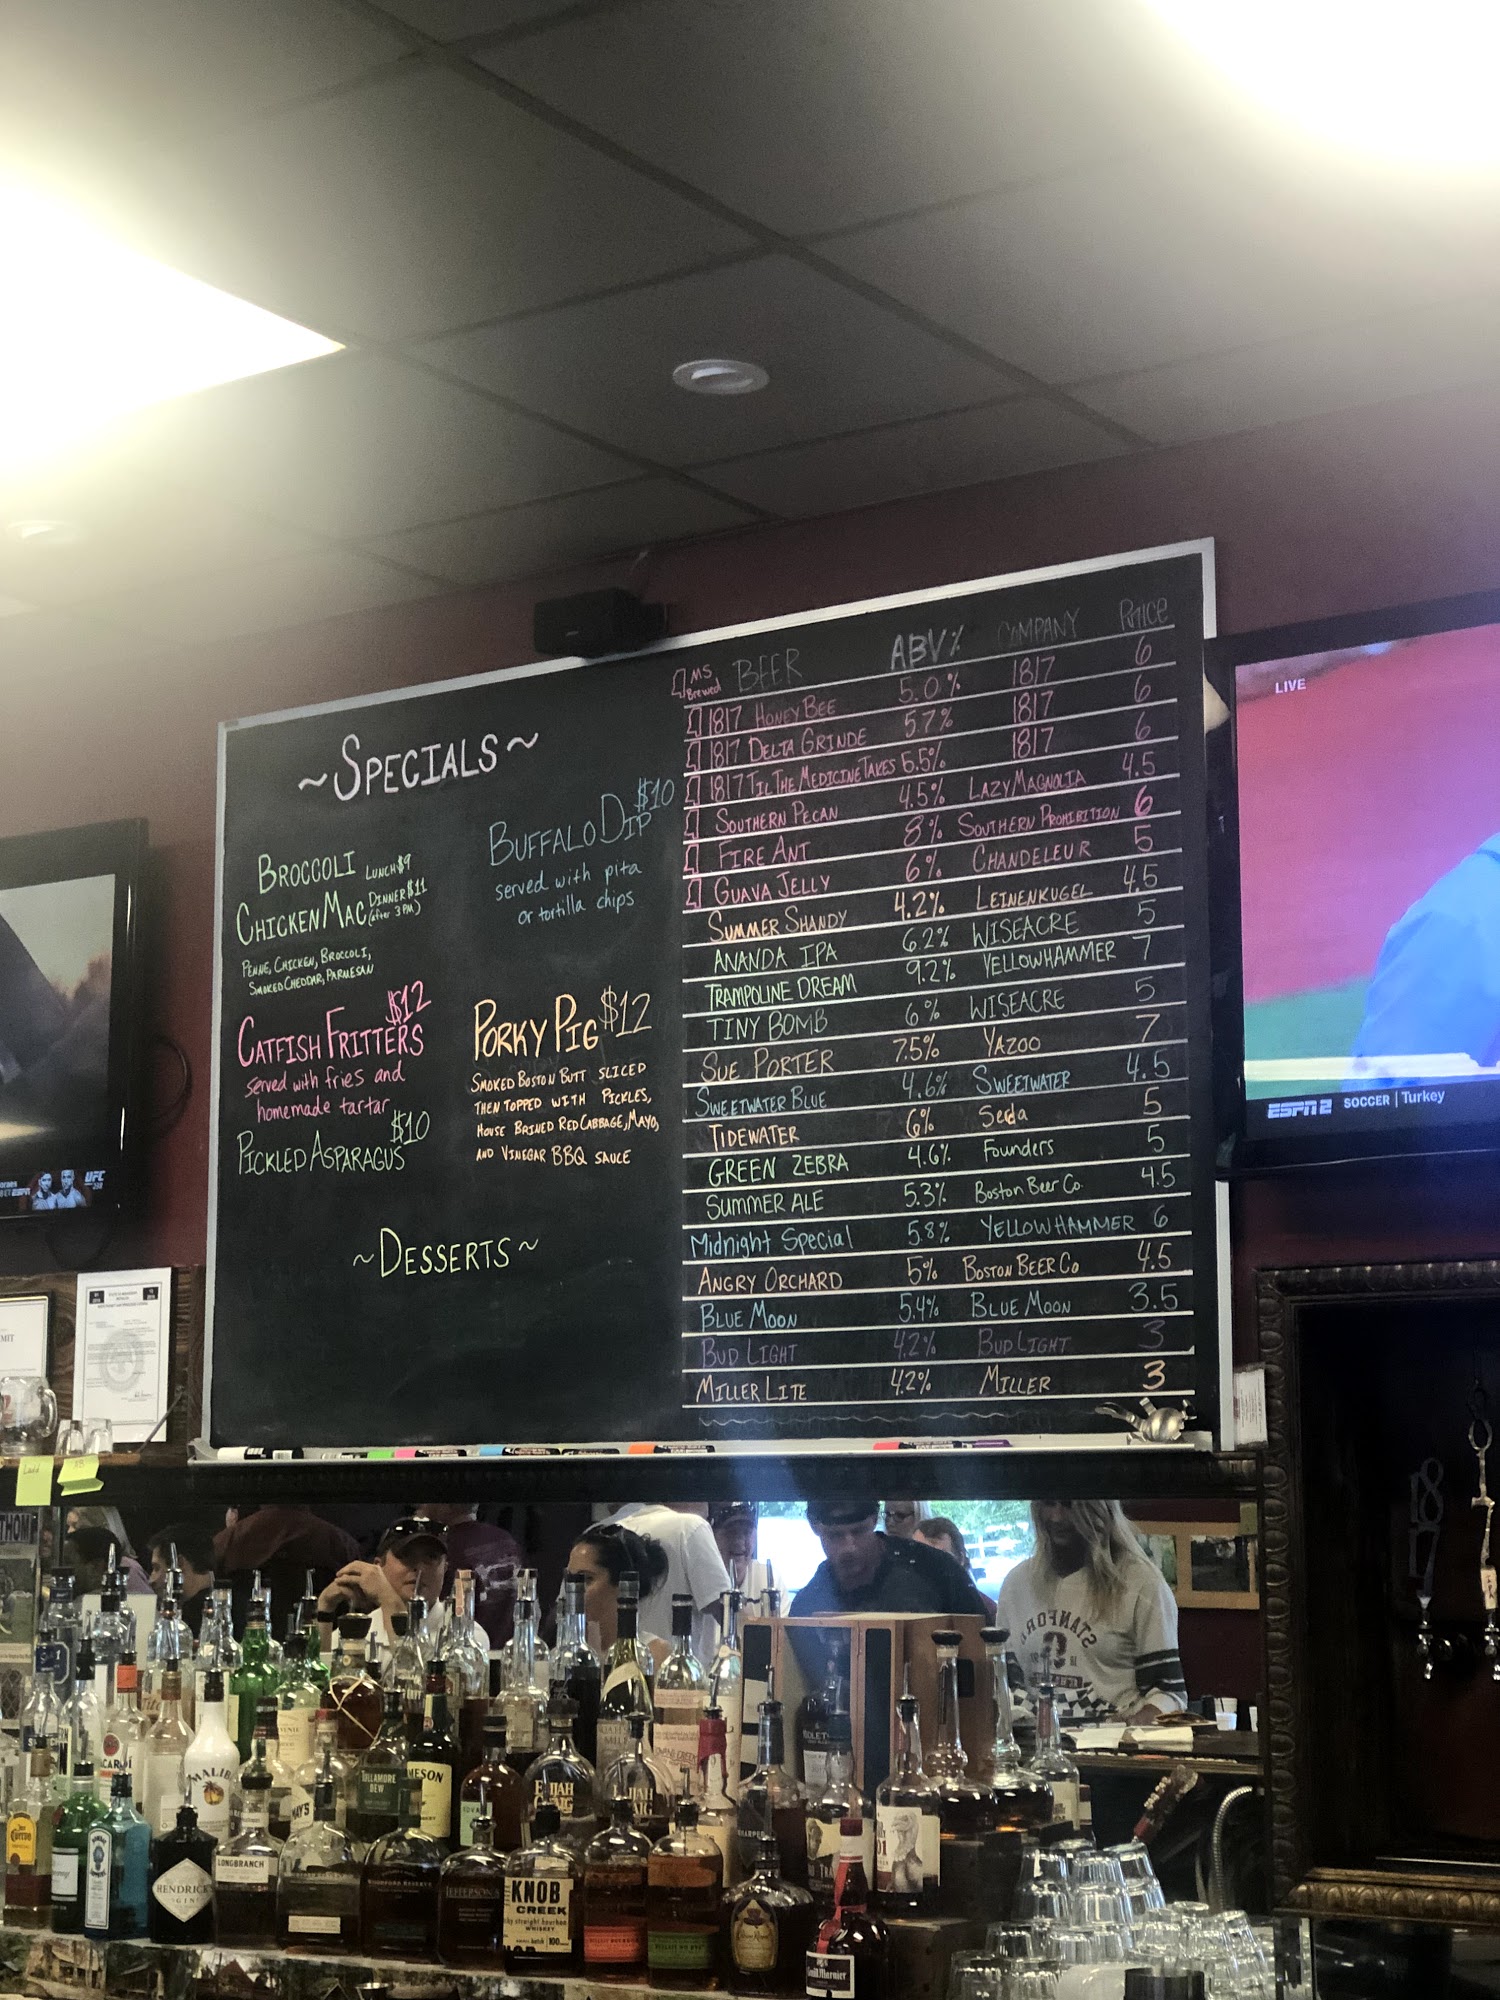 ~SPECIALS~
BROCCOLI LUNCH $9
CHICKEN MAC DINNER $11
(after 3 PM)
PENNE, CHICKEN, BROCCOLI,
SMOKED CHEDDAR, PARMESAN
CATFISH FRITTERS $12
served with fries and
homemade tartar
PICKLED ASPARAGUS $10
BUFFALO DIP $10
served with pita
or tortilla chips
PORKY PIG $12
SMOKED BOSTON BUTT SLICED
THEN TOPPED WITH PICKLES,
HOUSE BRINED RED CABBAGE, MAYO,
AND VINEGAR BBQ SAUCE
~DESSERTS~
MS Brewed BEER ABV% COMPANY PRICE
1817 HONEY BEE 5.0% 1817 6
1817 DELTA GRINDE 5.7% 1817 6
1817 TIL THE MEDICINE TAKES 5.5% 1817 6
SOUTHERN PECAN 4.5% LAZY MAGNOLIA 4.5
FIRE ANT 8% SOUTHERN PROHIBITION 6
GUAVA JELLY 6% CHANDELEUR 5
SUMMER SHANDY 4.2% LEINENKUGEL 4.5
ANANDA IPA 6.2% WISEACRE 5
TRAMPOLINE DREAM 9.2% YELLOWHAMMER 7
TINY BOMB 6% WISEACRE 5
SUE PORTER 7.5% YAZOO 7
SWEETWATER BLUE 4.6% SWEETWATER 4.5
TIDEWATER 6% Seda 5
GREEN ZEBRA 4.6% Founders 5
SUMMER ALE 5.3% Boston Beer Co. 4.5
Midnight Special 5.8% YELLOWHAMMER 6
ANGRY ORCHARD 5% BOSTON BEER CO 4.5
BLUE MOON 5.4% BLUE MOON 3.5
BUD LIGHT 4.2% BUD LIGHT 3
MILLER LITE 4.2% MILLER 3
LIVE
ESPN2 SOCCER | Turkey
UFC
1817
STANFORD
MALIBU
TULLAMORE
DEW
JAMESON
ELIJAH
CRAIG
HENDRICK'S
GIN
LONGBRANCH
JEFFERSON'S
KNOB
CREEK
WHISKEY
Grand Marnier